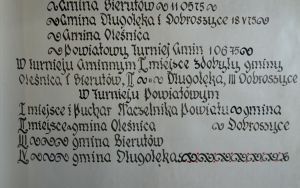 Gmina Bierutów 11 05 75
Gmina Długołęka i Dobroszyce 18 V 75
Gmina Oleśnica
Powiatowy Turniej Gmin 1 06 75
W turnieju Gminnym I miejsce zdobyły gminy
Oleśnica i Bierutów, II Długołęka, III Dobroszyce
W Turnieju Powiatowym
I miejsce i Puchar Naczelnika Powiatu gmina
II miejsce gmina Oleśnica Dobroszyce
III gmina Bierutów
IV gmina Długołęka